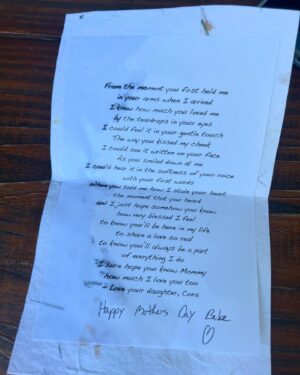 From the moment you first held me
in your arms when I arrived
I knew how much you loved me
by the teardrops in your eyes
I could feel it in your gentle touch
The way you kissed my cheek
I could see it written on your face
As you smiled down at me
I could hear it in the softness of your voice
with your first words
When you told me how I stole your heart
the moment that you heard
and I just hope somehow you know
how very blessed I feel
to know you'll be here in my life
to share a love so real
to know you'll always be a part
of everything I do
I sure hope you know Mommy
how much I love you too
- Love your daughter, Cora
Happy Mothers Day Babe